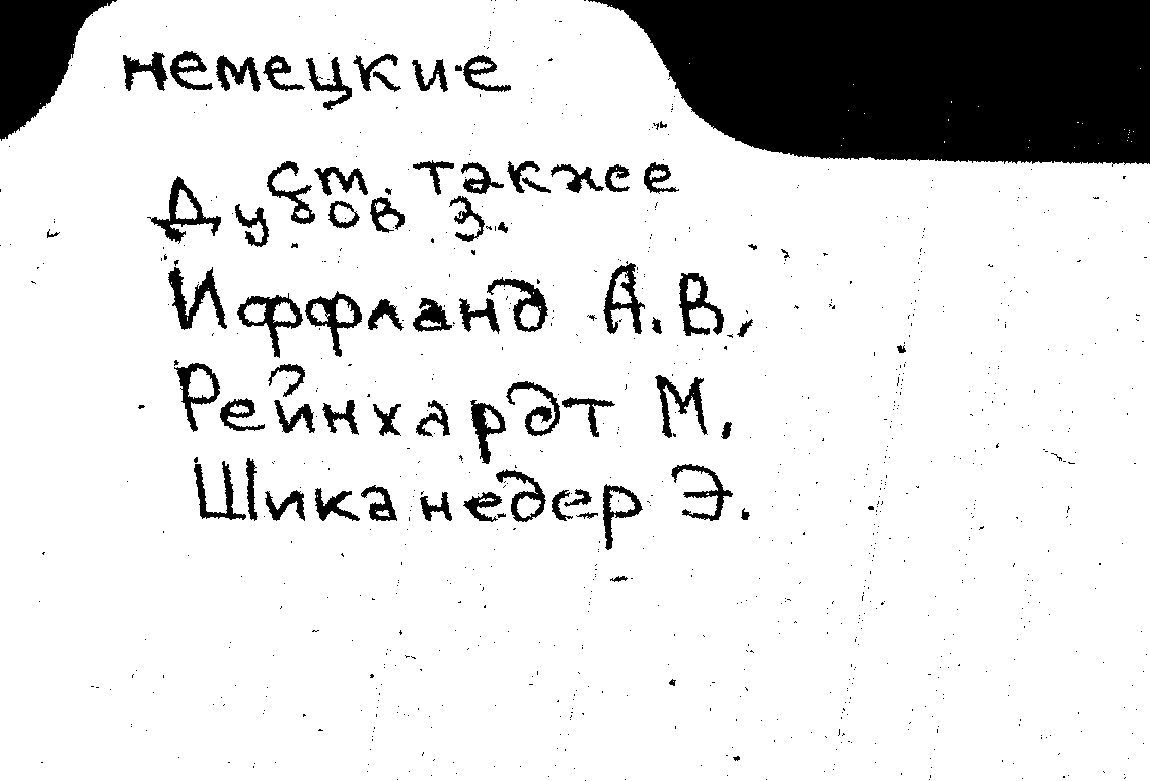 немецкие
см. также
Дубов З.
Иффланд А.В.
Рейнхардт М.
Шиканедер Э.